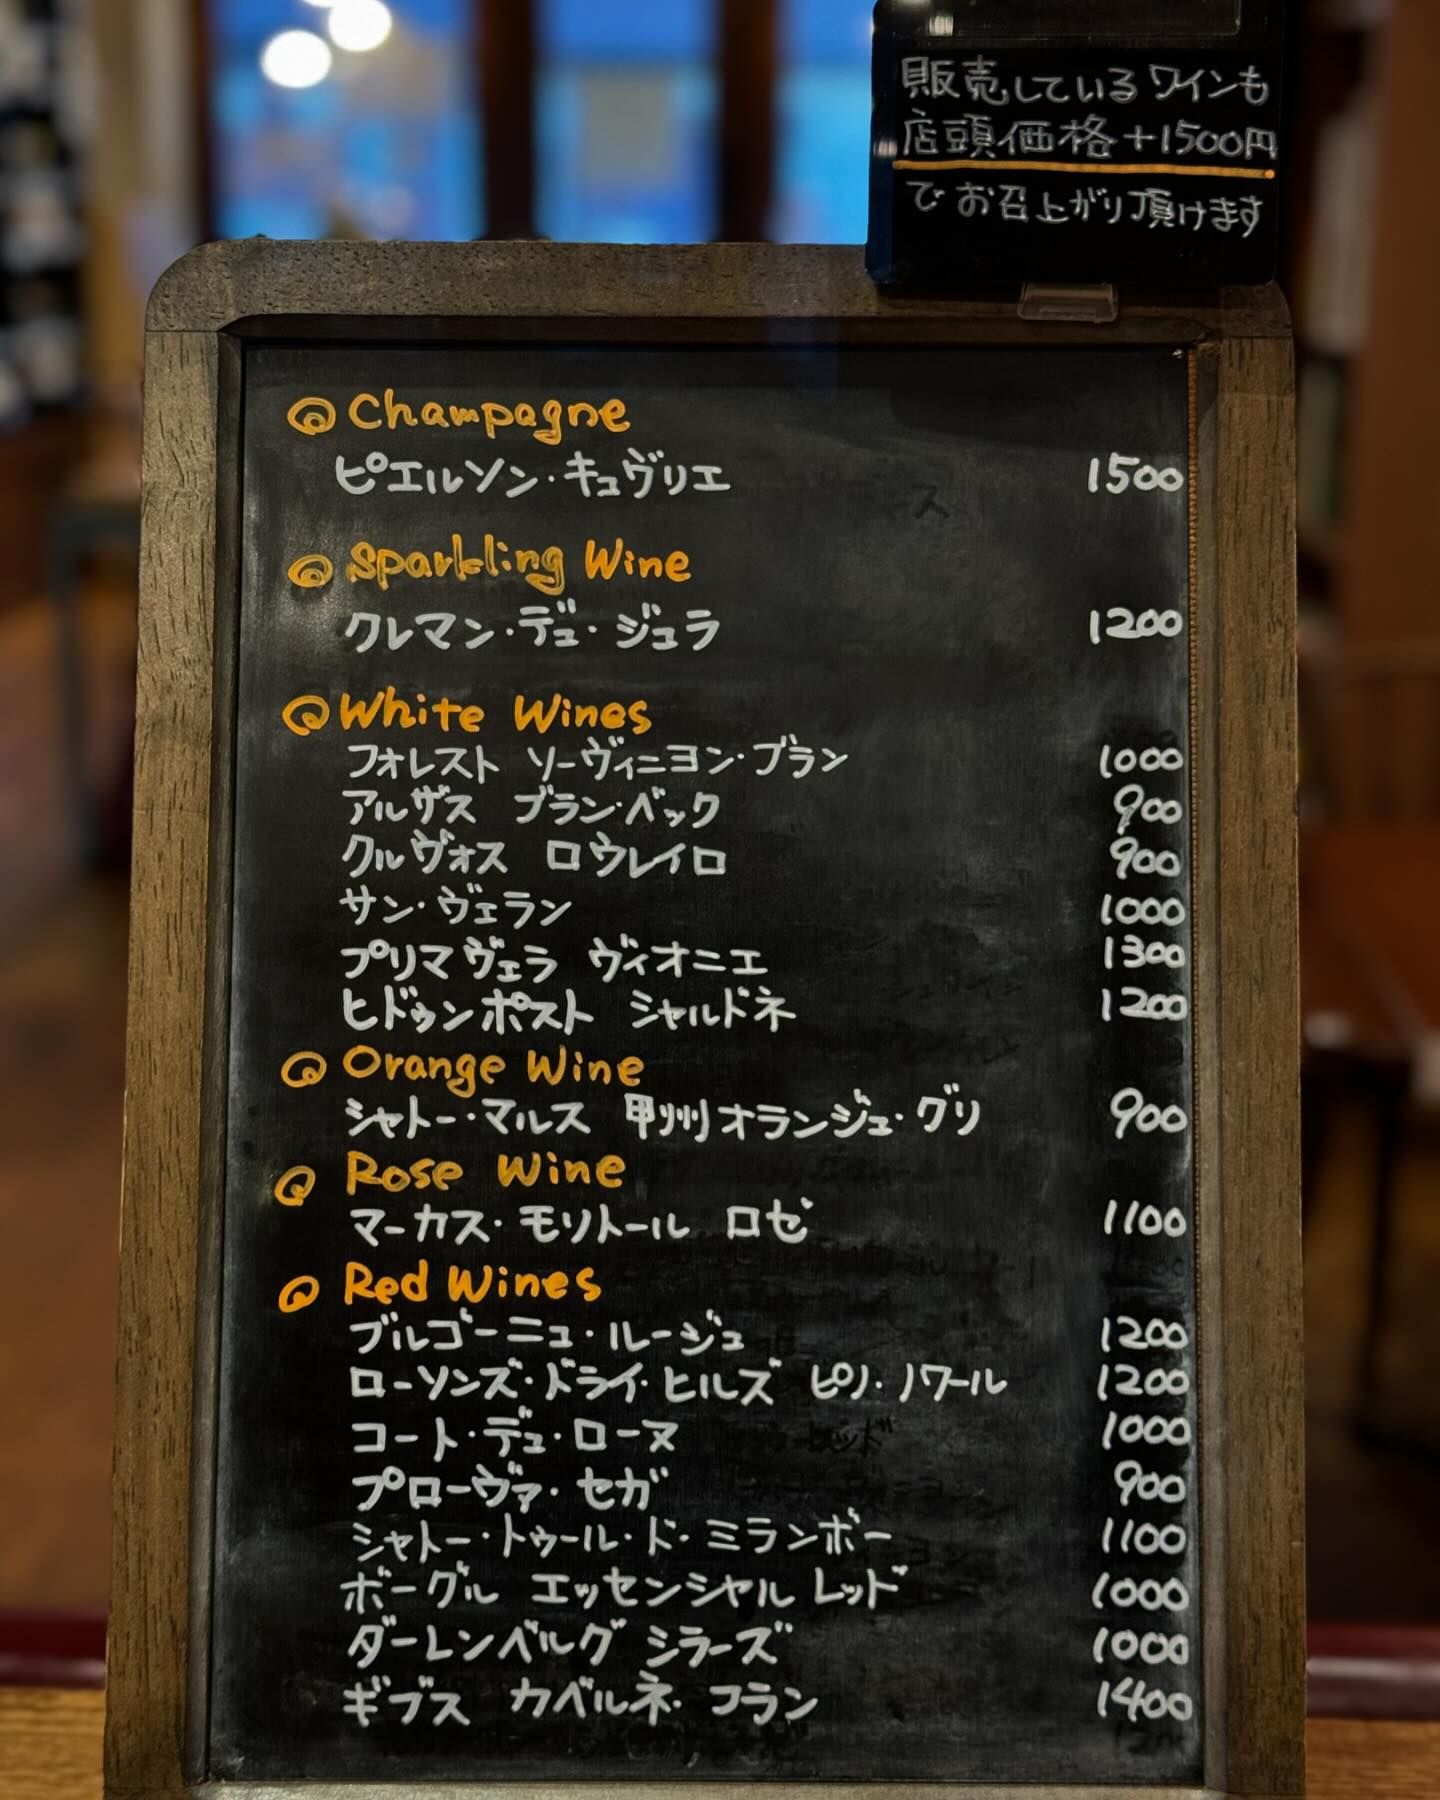 販売しているワインも
店頭価格+1500円
でお召上がり頂けます
Champagne
ピエルソン・キュヴリエ 1500
Sparkling Wine
クレマン・デュ・ジュラ 1200
White Wines
フォレスト ソーヴィニヨン・ブラン 1000
アルザス ブラン・ベック 900
クルヴォス ロウレイロ 900
サン・ヴェラン 1000
プリマヴェラ ヴィオニエ 1300
ヒドゥンポスト シャルドネ 1200
Orange Wine
シャトー・マルス 甲州オランジュ・グリ 900
Rose Wine
マーカス・モリトール ロゼ 1100
Red Wines
ブルゴーニュ・ルージュ 1200
ローソンズ・ドライ・ヒルズ ピノ・ノワール 1200
コート・デュ・ローヌ 1000
プローヴァ・セガ 900
シャトー・トゥール・ド・ミランボー 1100
ボーグル エッセンシャル レッド 1000
ダーレンベルグ シラーズ 1000
ギブス カベルネ・フラン 1400